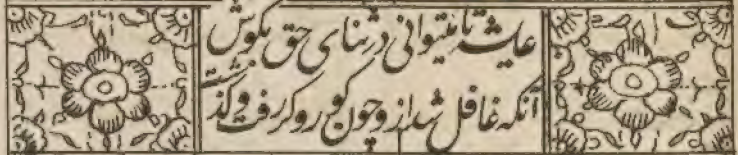 عایشه تا میتوانی در ثنای حق بکوش
آنکه غافل شد ازو چون کور و کر رفت و گذشت